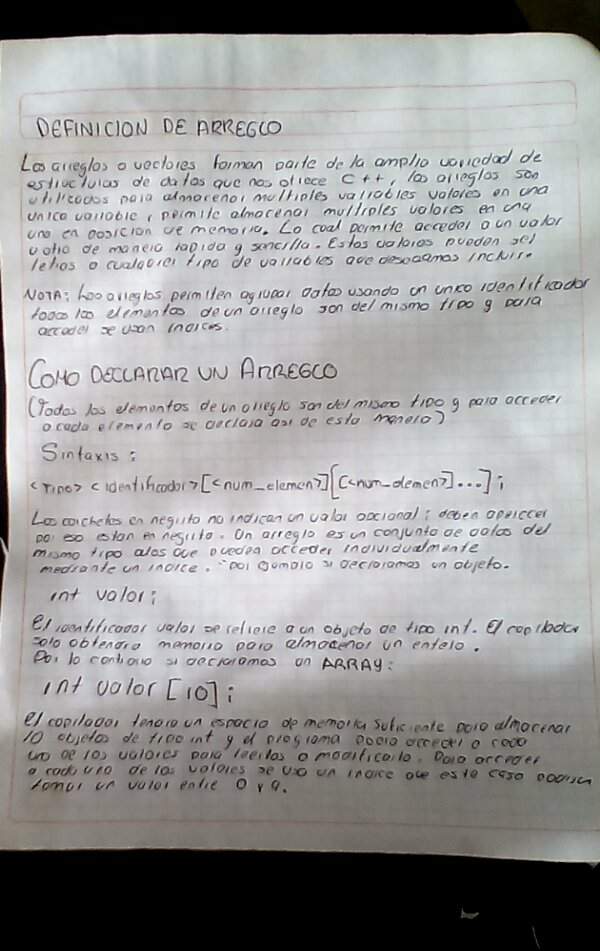 DEFINICION DE ARREGLO
Los arreglos o vectores forman parte de la amplia variedad de
estructuras de datos que nos ofrece C++, los arreglos son
utilizados para almacenar multiples variables valores en una
unica variable, permite almacenar multiples valores en una
una en posicion de memoria. Lo cual permite acceder a un valor
u otro de manera rapida y sencilla. Estos valores pueden ser
letras o cualquier tipo de variables que deseamos incluir.
NOTA: Los arreglos permiten agrupar datos usando un unico identificador
todos los elementos de un arreglo son del mismo tipo y para
acceder se usan indices.
COMO DECLARAR UN ARREGLO
(Todos los elementos de un arreglo son del mismo tipo y para acceder
a cada elemento se declara asi de esta manera)
Sintaxis:
<Tipo> <identificador>[<num_elemen>][[<num_elemen>]...];
Los corchetes en negrita no indican un valor opcional; deben aparecer
por eso estan en negrita. Un arreglo es un conjunto de datos del
mismo tipo a los que pueden acceder individualmente
mediante un indice. por ejemplo si declaramos un objeto.
int valor;
El identificador valor se refiere a un objeto de tipo int. El copilador
solo obtendra memoria para almacenar un entero.
Por lo contrario si declaramos un ARRAY:
int valor [10];
El copilador tendra un espacio de memoria suficiente para almacenar
10 objetos de tipo int y el programa podra acceder a cada
uno de los valores para leerlos o modificarlo. Para acceder
a cada uno de los valores se usa un indice que este caso podrian
tomar un valor entre 0 y 9.